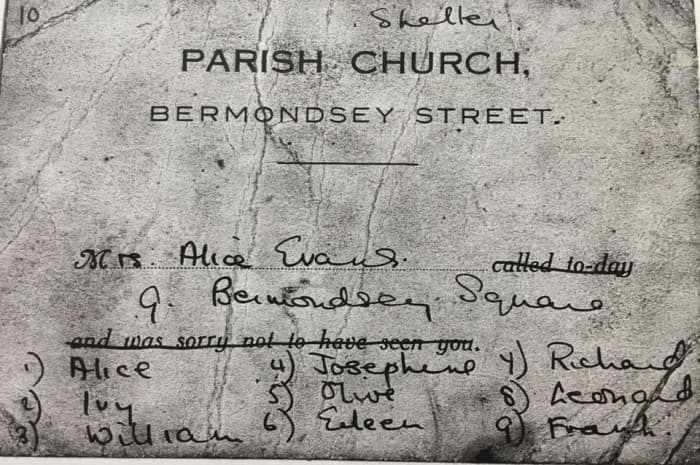 10
Shelter.
PARISH CHURCH,
BERMONDSEY STREET.
Mrs. Alice Evans. called to-day
9. Bermondsey Square
and was sorry not to have seen you.
1) Alice 4) Josephene 7) Richard
2) Ivy 5) Olive 8) Leonard
3) William 6) Eileen 9) Frank.